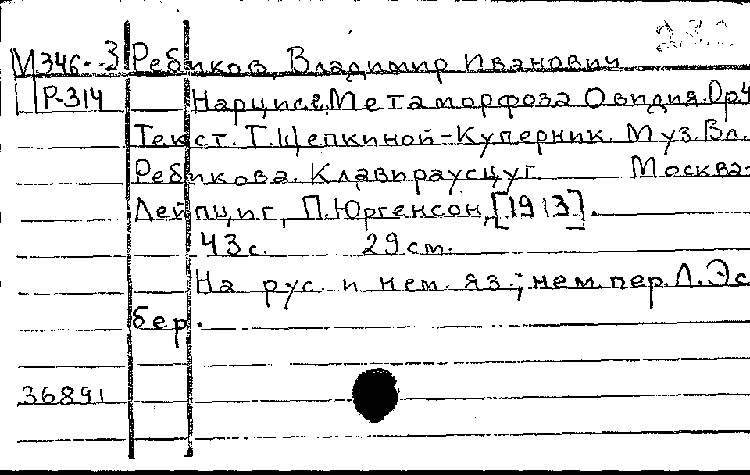 М346-3 Ребиков, Владимир Иванович
Р-314 Нарцисс. Метаморфоза Овидия. Op.4
Текст. Т. Щепкиной-Куперник. Муз. Вл.
Ребикова. Клавираусцуг. Москва-
Лейпциг, П. Юргенсон, [1913].
43с. 29см.
На рус. и нем. яз.; нем. пер. Л. Эс
бер.
36891